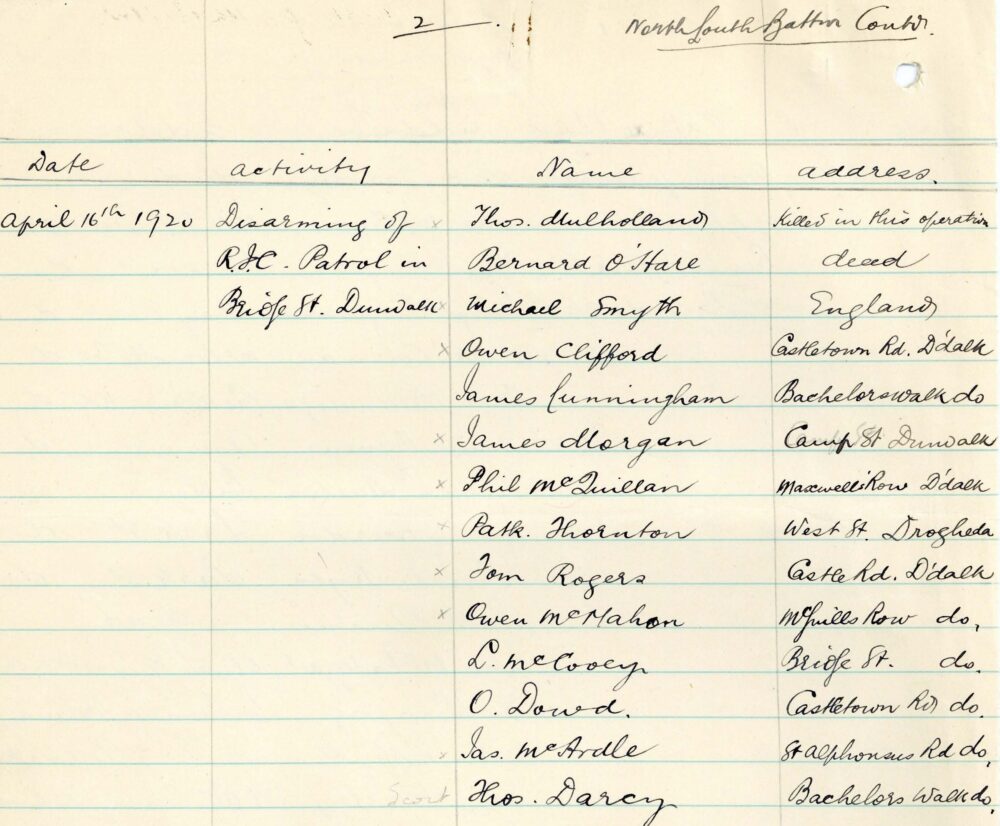 2
North Louth Battn Contd.
Date activity Name address.
April 16th 1920 Disarming of x Thos. Mulholland Killed in this operation
R.I.C. Patrol in Bernard O'Hare dead
Bridge St. Dundalk x Michael Smyth England
x Owen Clifford Castletown Rd. D'dalk
James Cunningham Bachelorswalk do
x James Morgan Camp St Dundalk
x Phil McQuillan Maxwells Row D'dalk
x Patk. Thornton West St. Drogheda
x Tom Rogers Castle Rd. D'dalk
x Owen McMahon McGuills Row do,
L. McCooey Bridge St. do.
O. Dowd. Castletown Rd do.
x Jas. McArdle St Alphonsus Rd do,
Scout Thos. Darcy Bachelors Walk do,